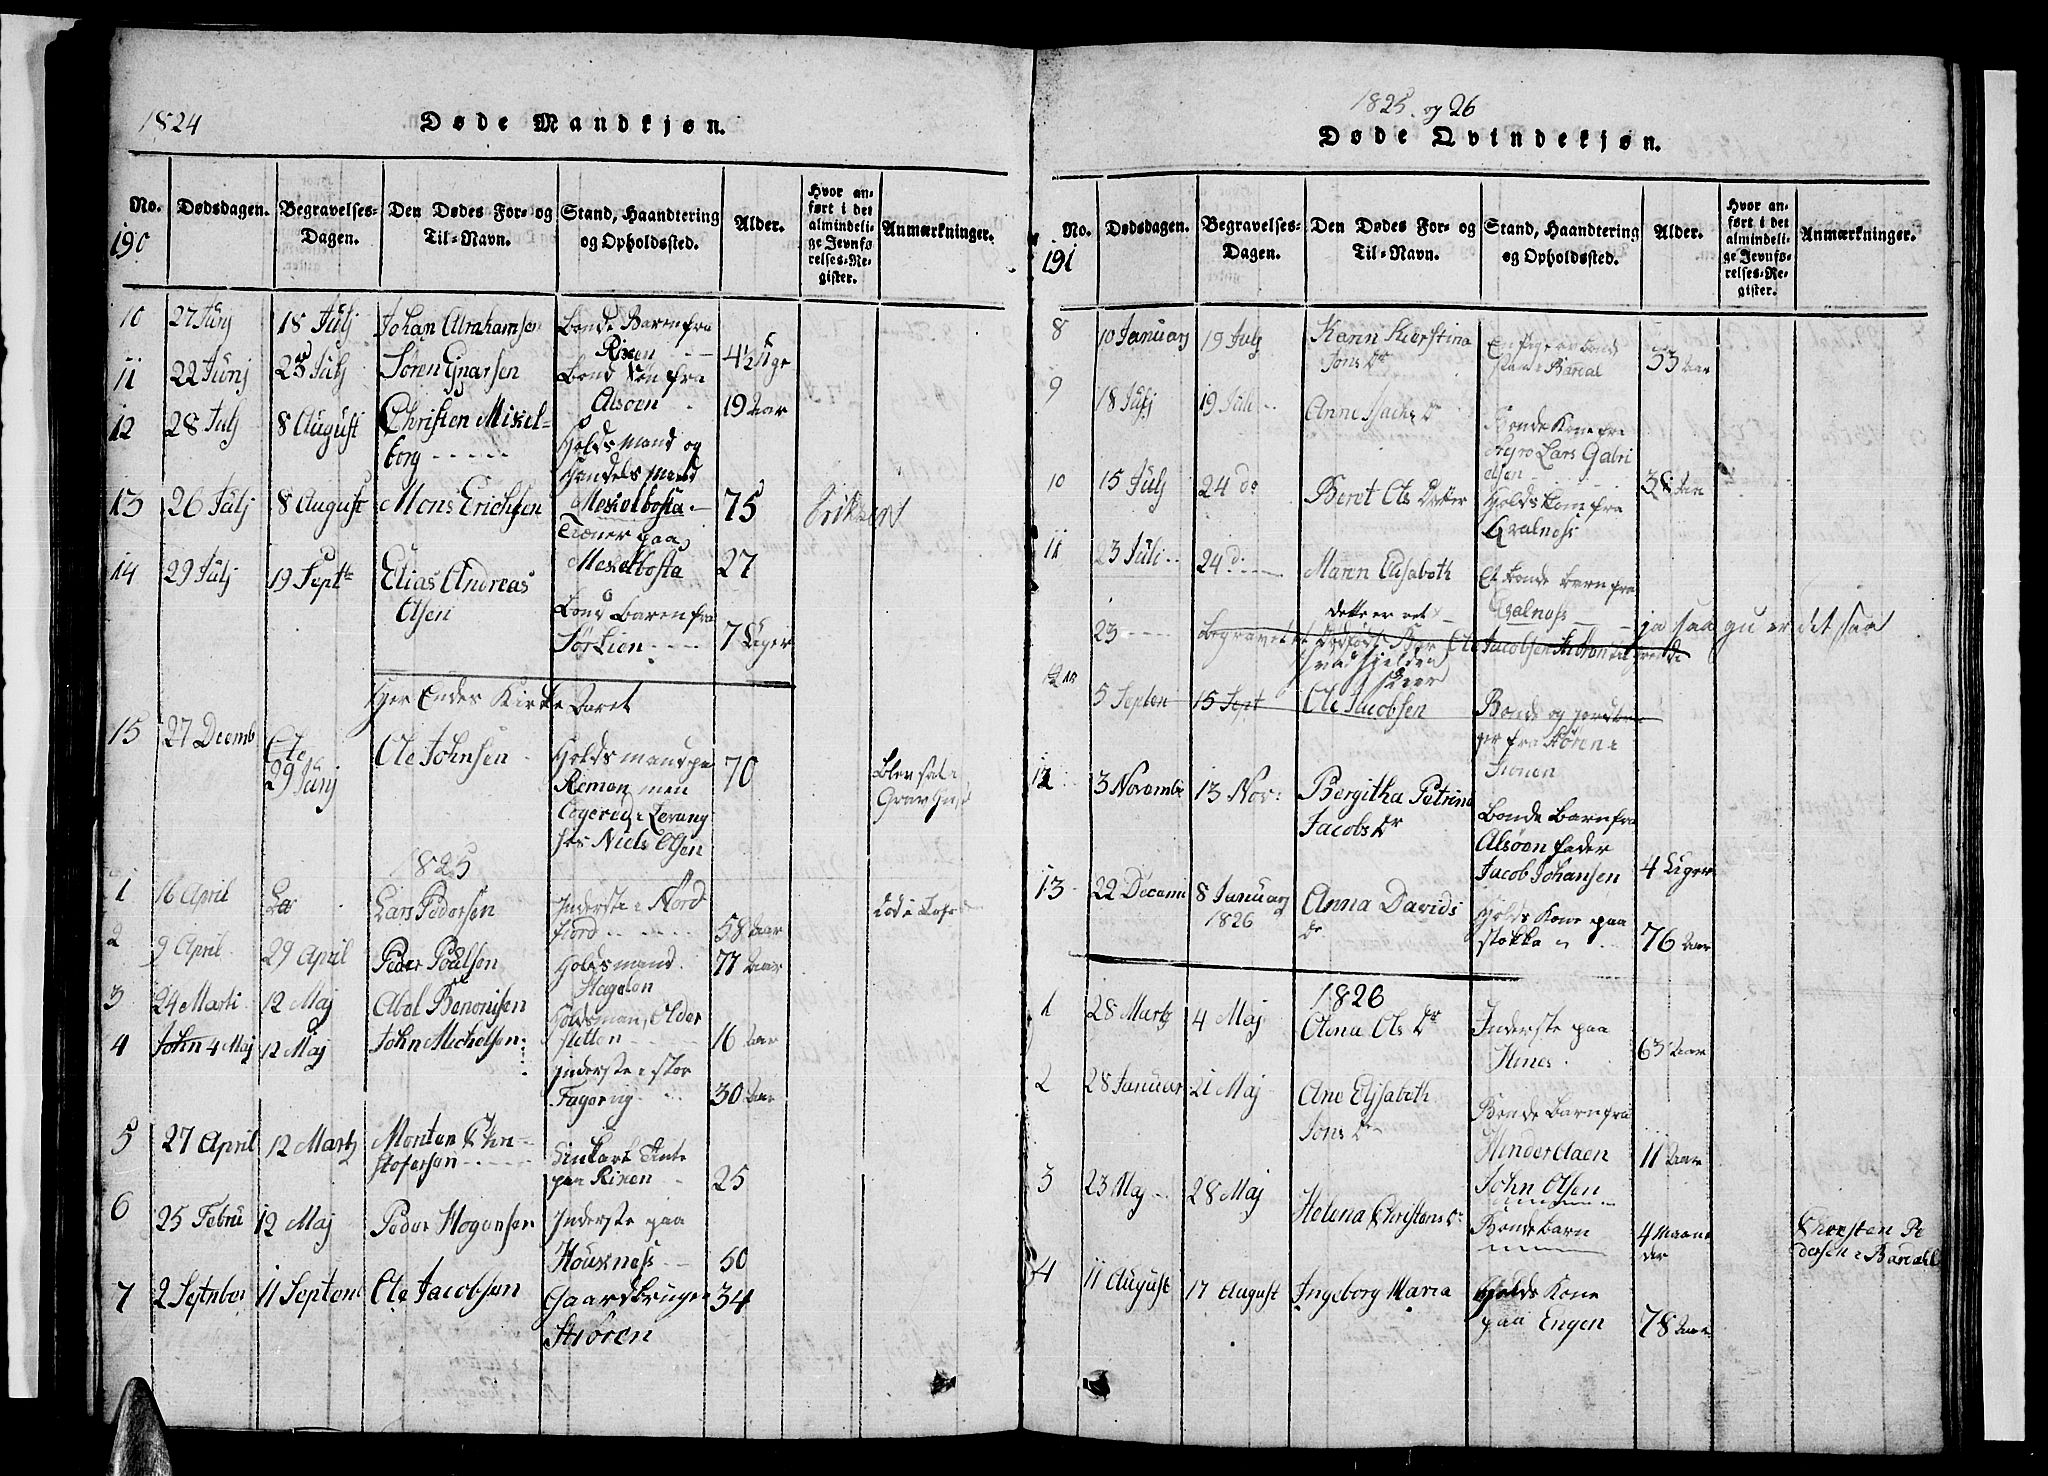 1824
Døde Mandkjøn.
No.
190
Dødsdagen.
Begravelses-
Dagen.
Den Dødes For- og
Til-Navn.
Stand, Haandtering
og Opholdssted.
Alder.
Hvor an-
ført i det
almindeli-
ge Jevnfø
relses-Re-
gister.
Anmærkninger.
10 27 Junj 18 Julj Johan Abrahamsen Bonde Baren fra
Rixen 4½ Uge
11 22 Junj 25 Julj Søren Enarsen Bond Søn fra
Alsøen 19 Aar
12 28 Julj 8 August Christen Mixel-
borg Holdsmand og
Handels Mand
Mexelbosta 75
13 26 Julj 8 August Mons Erichsen Eriksen
Tiener paa
Mexelbosta 27
14 29 Julj 19 Septb Elias Andreas
Olsen Bond Baren fra
Sørlien 7 Uger
Her Endes Kirke Aaret
15 27 Decemb Ole Johnsen Holdsmand paa
29 Junj Remen men
Levang 70
hos Niels Olsen
Blev sat i
Grav
1825
1 16 April Lars Pedersen Inderste i Nord
fiord 58 Aar
2 9 April 29 April Peder Poulsen Holdsmand
Hagelen 77 Aar
3 24 Marti 12 Maj Abel Benonisen Holdsman, Older
sletten 16 Aar
4 John 4 Maj 12 Maj John Michelsen Inderste i stor
Fagervig 30 Aar
5 27 April 12 Martz Morten Chri-
stofersen
paa Rixen 25
6 25 Febru 12 Maj Peder Hogensen Inderste paa
Houxness 50
7 2 Septnber 11 Septem Ole Jacobsen Gaardbruger
Strøren 34
1825 og 26
Døde Qvindekjøn.
No.
191
Dødsdagen.
Begravelses-
Dagen.
Den Dødes For- og
Til-Navn.
Stand, Haandtering
og Opholdssted.
Alder.
Hvor an-
ført i det
almindeli-
ge Jevnfø-
relses-Re-
gister.
Anmærkninger.
8 10 Januarj 19 Julj Karen Kierstina
Jons Dr Bareal 33 Aar
9 18 Julj 19 Juli Anne Isachs Dr Bonde Kone fra
Lars Gabri
elsen 38 Aar
10 15 Julj 24 do Beret Ols Datter Holds Kone fra
Qvalness
11 23 Juli 24 d Maren Elisabeth Et Bonde Barn fra
Qvalness
dette er ret ja saa gu er det saa
23 Begravet et dødfødt Barn Ole Jacobsen
5 Septen 15 Sept Ole Jacobsen Bonde og
ger fra Støren i
12 3 Novembr 13 Nov: Bergitha Petrina
Jacobs Dr Bonde Barn fra
Alsøen fader
Jacob Johansen 4 Uger
13 22 Decemb 8 Januarj
1826 Anna Davids
Dr Holds Kone paa
støkka 76 Aar
1826
1 28 Martz 4 Maj Olena Ols Dr Inderste paa
Hines 63 Aar
2 28 Januar 21 Maj Ane Elisabeth
Jons Dr Bonde Barn fra
Hinderaaen 11 Aar
John Olsen
3 23 Maj 28 Maj Helena Christens Dr Bonde Barn 4 Maane
der
Christen Pe
dersen i Bareahl
4 11 August 17 August Ingeborg Maria Holds Kone
paa Engen 78 Aar